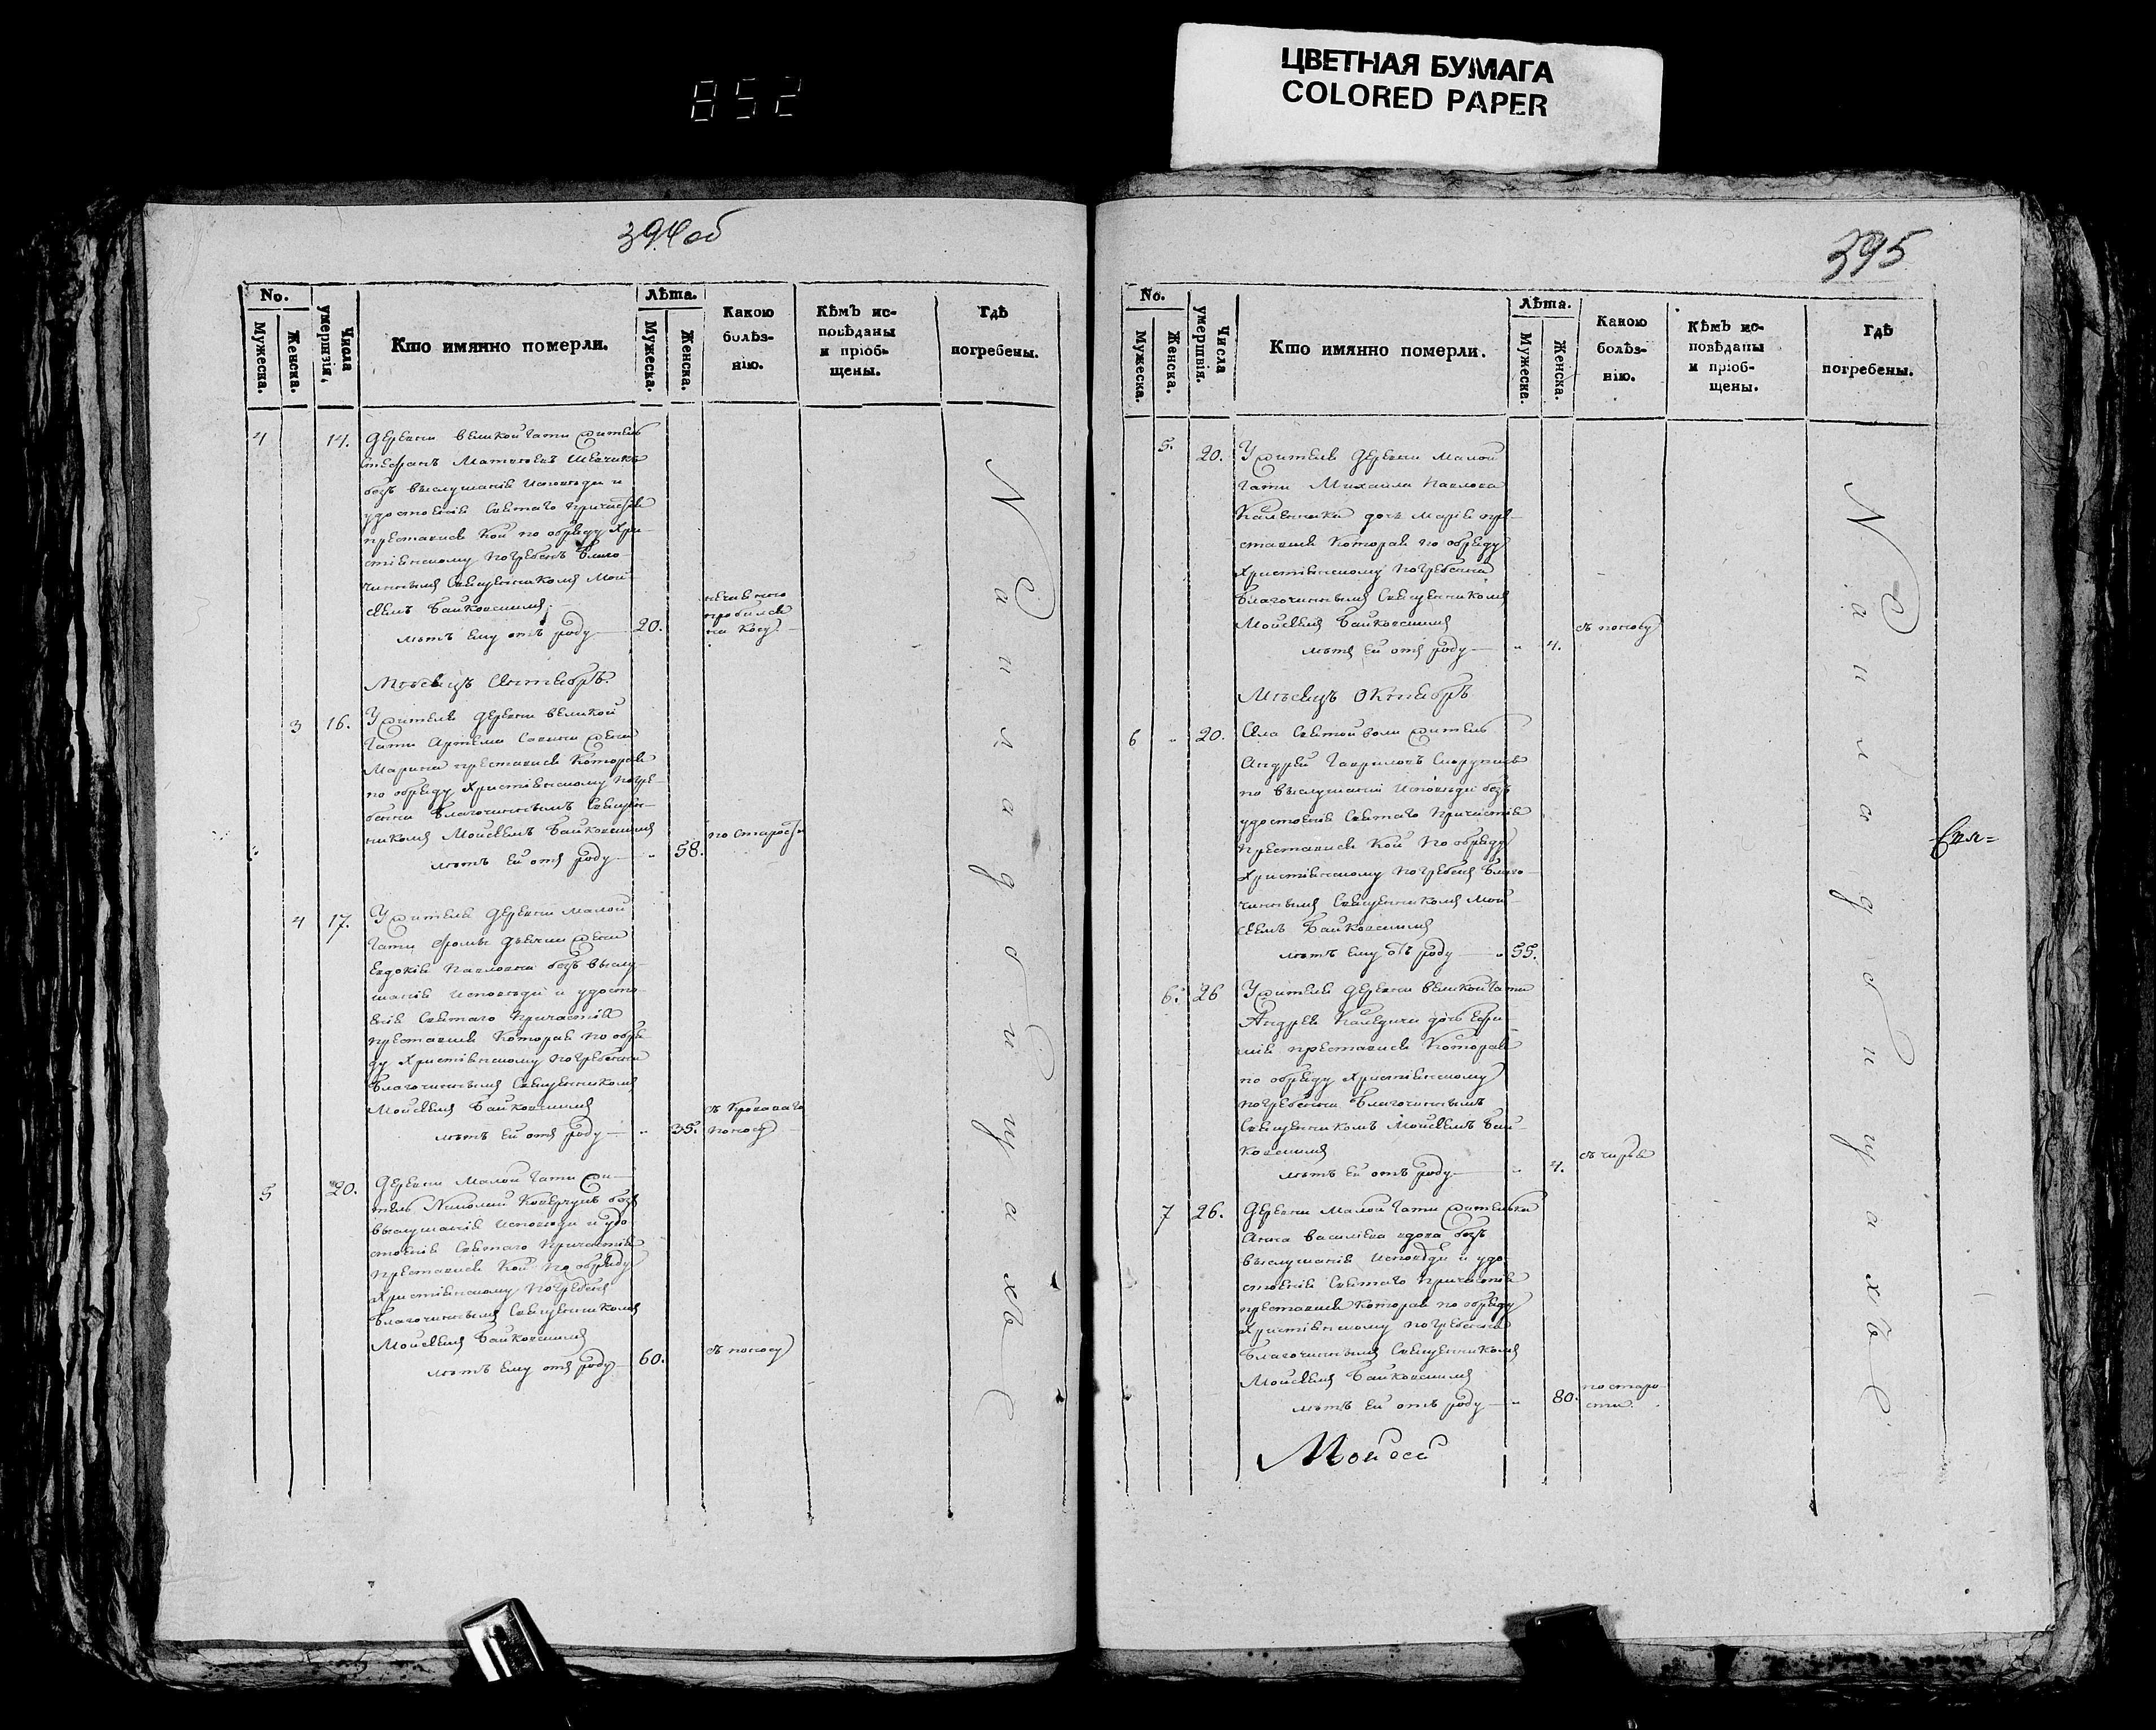 852
ЦВЕТНАЯ БУМАГА
COLORED PAPER
394об
No.
Мужеска.
Женска.
Числа умершвія,
Кто имянно померли.
Лѣта.
Мужеска.
Женска.
Какою болѣзнію.
Кѣмъ исповѣданы и пріобщены.
Гдѣ погребены.
4 14. Деревни Великой Гати житель
Стефанъ Матвѣевъ Шевчикъ
безъ выслушанія Исповѣди и
удостоенія Святаго Причастія
преставися кой по обряду Хри-
стіянскому погребенъ Благо
чиннымъ Священникомъ Мои
сеемъ Байковскимъ
лѣтъ ему отъ роду 20. нечаянно
пробился
на косу.
Мѣсяцъ Сентябрь.
3 16. У жителя деревни Великой
Гати Артема Савыки жена
Марина преставися которая
по обряду Христіянскому погре-
бенна Благочиннымъ Священ-
никомъ Моисеемъ Байковскимъ
лѣтъ ей отъ роду " 58. по старости
4 17. У жителя деревни Малой
Гати Фомы жена
Евдокія Павловна безъ выслу-
шанія Исповѣди и удосто-
енія Святаго Причастія
преставися которая по обря
ду Христіянскому погребенна
Благочиннымъ Священникомъ
Моисеемъ Байковскимъ
лѣтъ ей отъ роду " 35. съ кроваваго
поносу
5 20. Деревни Малой Гати жи-
тель Николай безъ
выслушанія Исповѣди и удо
стоенія Святаго Причастія
преставися кой по обряду
Христіянскому погребенъ
Благочиннымъ Священникомъ
Моисеемъ Байковскимъ
лѣтъ ему отъ роду 60. съ поносу
На кладбищахъ
395
No.
Мужеска.
Женска.
Числа умершвія.
Кто имянно померли.
Лѣта.
Мужеска.
Женска.
Какою болѣзнію.
Кѣмъ исповѣданы и пріобщены.
Гдѣ погребены.
5. 20. У жителя деревни Малой
Гати Михайла Павлова
дочь Марія пре-
ставися которая по обряду
Христіянскому погребенна
Благочиннымъ Священникомъ
Моисеемъ Байковскимъ
лѣтъ ей отъ роду " 4. съ поносу
Мѣсяцъ Октябрь
6 " 20. Села Святой Воли житель
Андрей Гавриловъ
по выслушаніи Исповѣди безъ
удостоенія Святаго Причастія
преставися кой по обряду
Христіянскому погребенъ Благо-
чиннымъ Священникомъ Мои-
сеемъ Байковскимъ
лѣтъ ему отъ роду 55.
6. 26 У жителя деревни Великой Гати
Андрея дочь Ефи-
мія преставися которая
по обряду Христіянскому
погребенна Благочиннымъ
Священникомъ Моисеемъ Бай-
ковскимъ
лѣтъ ей отъ роду " 4. съ чирья
7 26. Деревни Малой Гати жителька
Анна Василіева вдова безъ
выслушанія Исповѣди и удо
стоенія Святаго Причастія
преставися которая по обряду
Христіянскому погребенна
Благочиннымъ Священникомъ
Моисеемъ Байковскимъ
лѣтъ ей отъ роду " 80. по старо
сти.
Моисей
На кладбищахъ